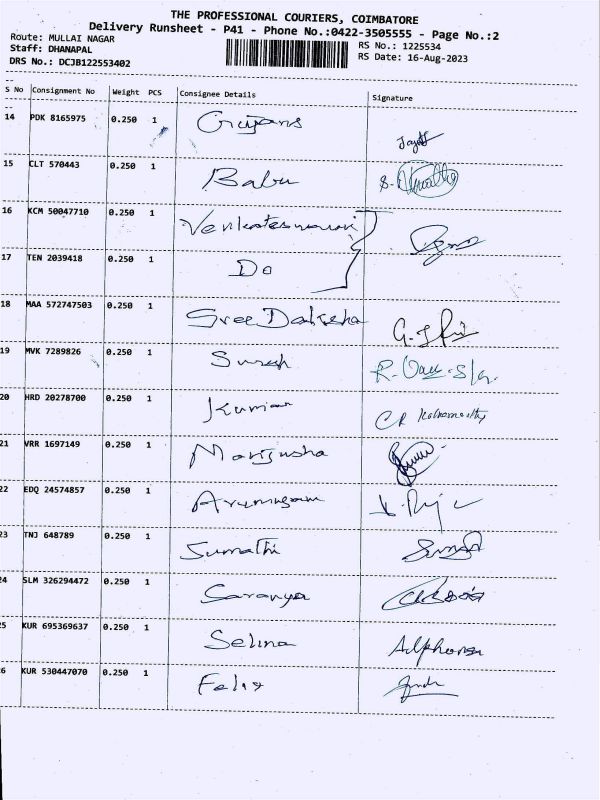 THE PROFESSIONAL COURIERS, COIMBATORE
Delivery Runsheet - P41 - Phone No.:0422-3505555 - Page No.:2
Route: MULLAI NAGAR
RS No.: 1225534
Staff: DHANAPAL
RS Date: 16-Aug-2023
DRS No.: DCJB122553402
S No Consignment No Weight PCS Consignee Details Signature
14 PDK 8165975 0.250 1
15 CLT 570443 0.250 1 Babu
16 KCM 50047710 0.250 1 Venkateswari
17 TEN 2039418 0.250 1 Do
18 MAA 572747503 0.250 1 Sree Daksha
19 MVK 7289826 0.250 1 Suresh
20 HRD 20278700 0.250 1 Kumar
21 VRR 1697149 0.250 1
22 EDQ 24574857 0.250 1 Arumugam
23 TNJ 648789 0.250 1 Sumathi
24 SLM 326294472 0.250 1 Saranya
5 KUR 695369637 0.250 1 Selina Alphonsa
6 KUR 530447070 0.250 1 Felix